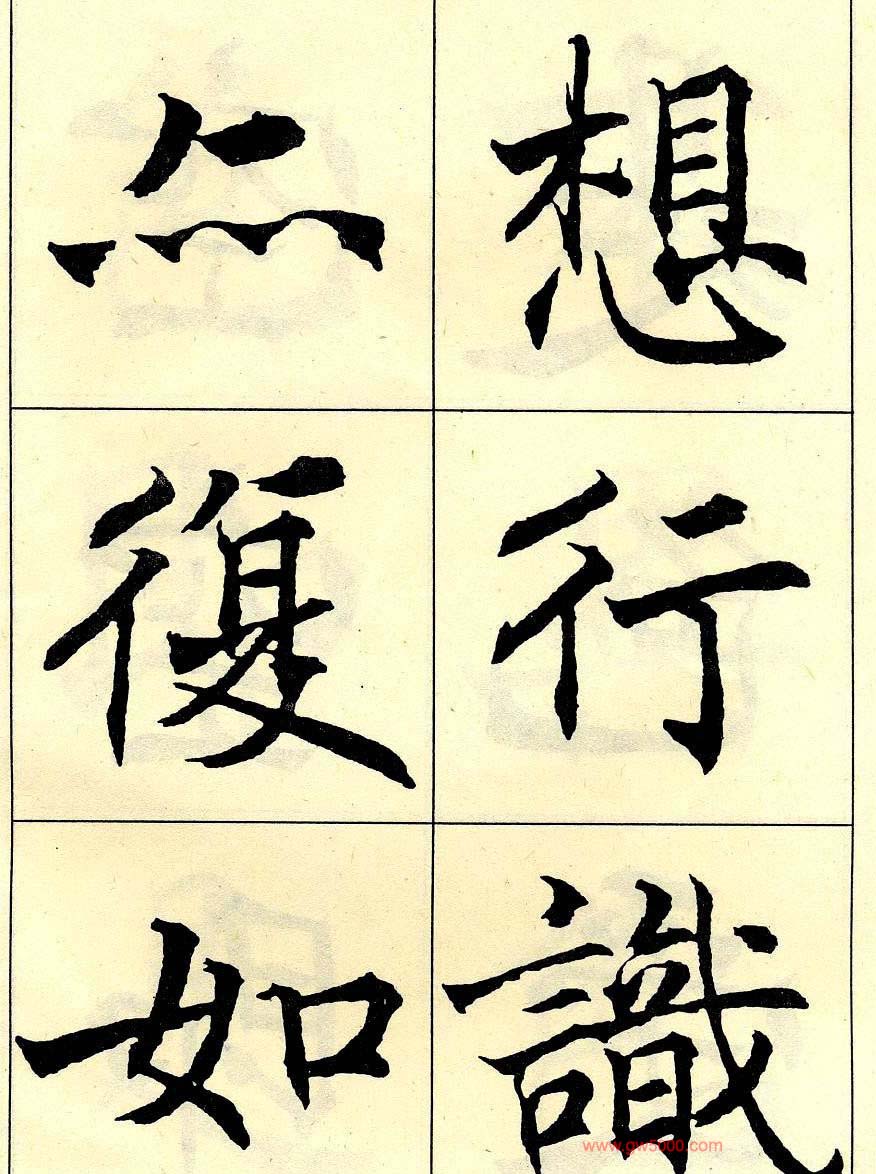 想行識
亦復如
www.gw5000.com